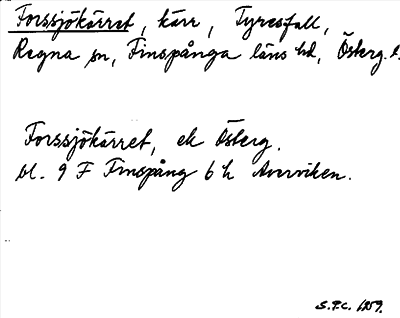 Forssjökärret, kärr, Tyresfall,
Regna sn, Finspånga läns hd, Österg. l.
Forssjökärret, ek Österg.
bl. 9 F Finspång 6 h Averviken.
S.P.C. 1959.